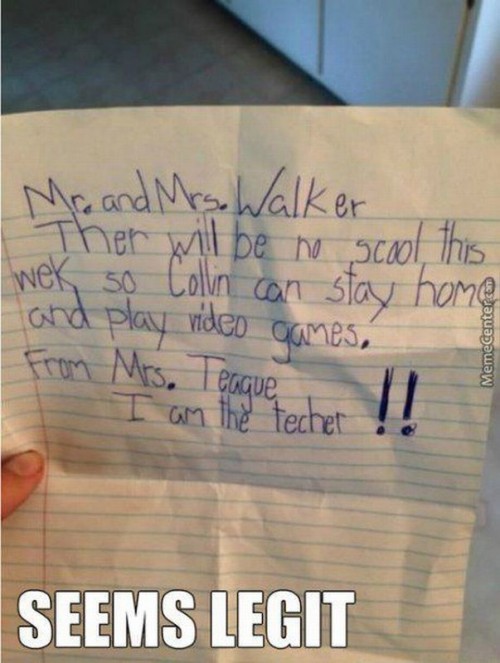 Mr. and Mrs. Walker
Ther will be no scool this
wek so Collin can stay home
and play video games.
From Mrs. Teague
I am the techer !!
MemeCenter.com
SEEMS LEGIT